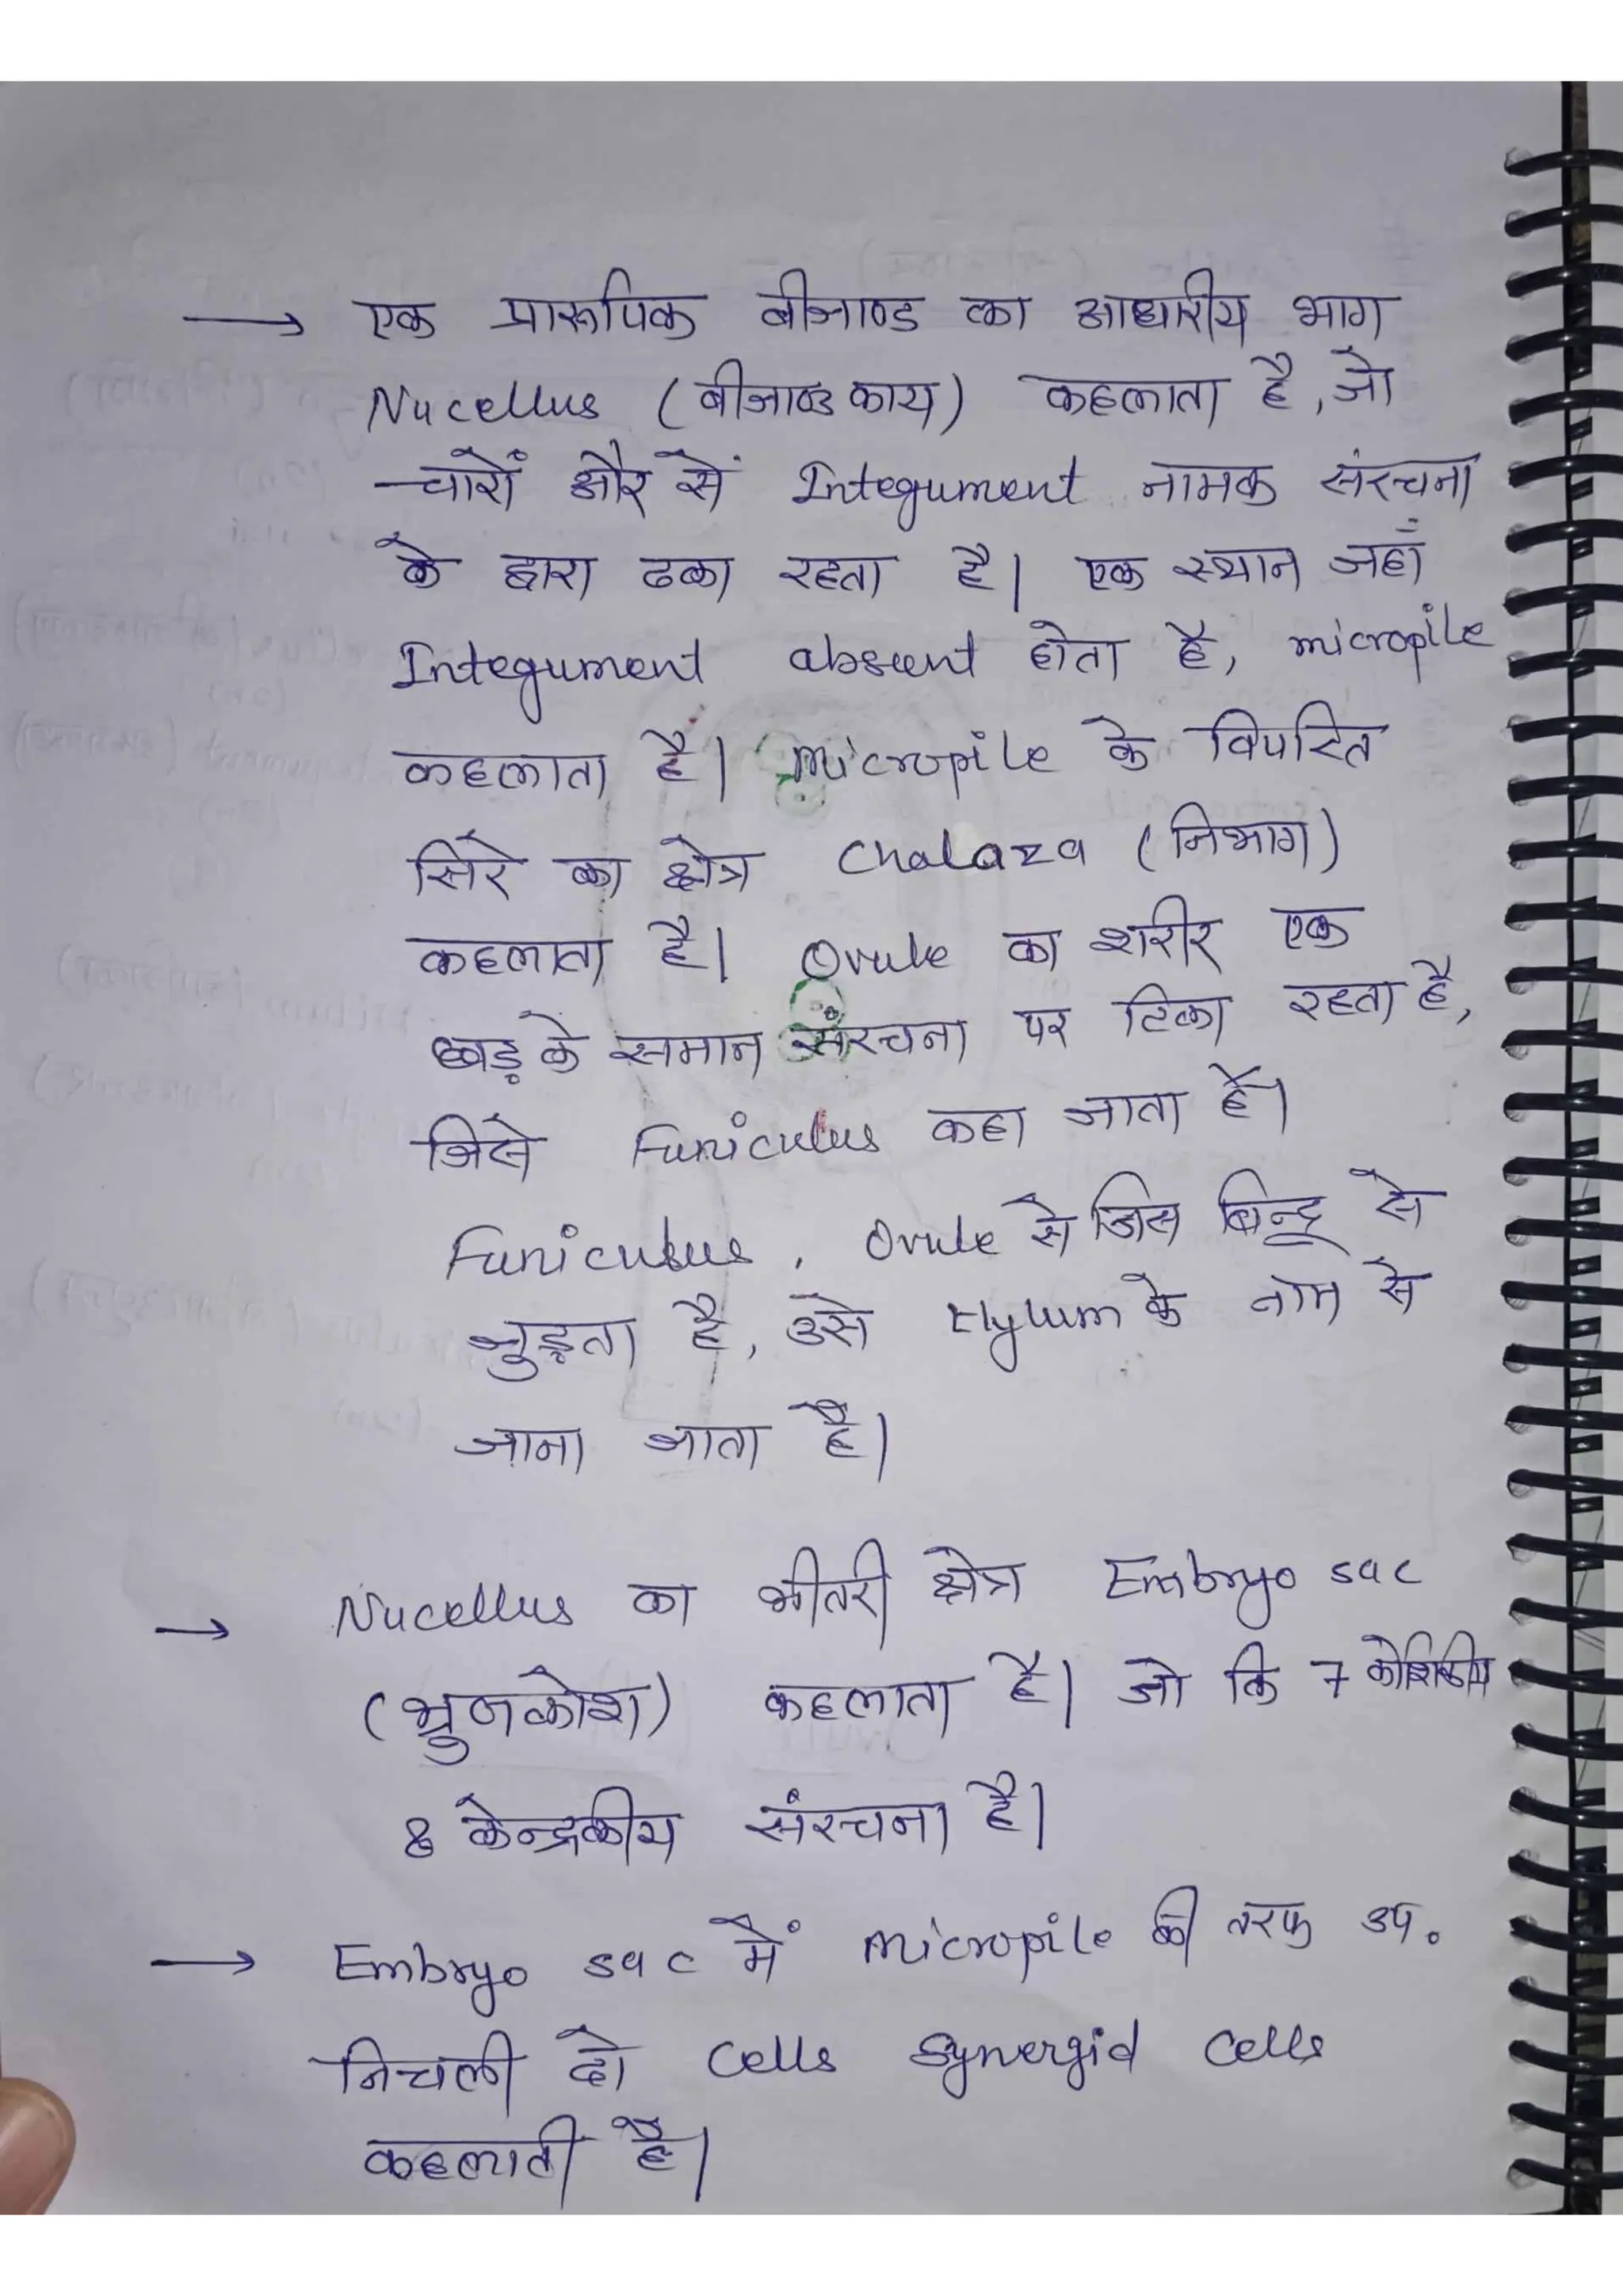 → एक प्रारूपिक बीजाण्ड का आधारीय भाग
Nucellus (बीजाण्डकाय) कहलाता है, जो
चारों और से Integument नामक संरचना
के द्वारा ढका रहता है। एक स्थान जहाँ
Integument absent होता है, micropile
कहलाता है। micropile के विपरित
सिरे का क्षेत्र Chalaza (निभाग)
कहलाता है। Ovule का शरीर एक
के समान संरचना पर टिका रहता है,
जिसे Funiculus कहा जाता है।
Funiculus, Ovule से जिस बिन्दू से
जुड़ता है, उसे Hylum के नाम से
जाना जाता है।
→ Nucellus का भीतरी क्षेत्र Embryo sac
(भ्रुणकोश) कहलाता है। जो कि 7 कोशिकीय
8 केन्द्रकीय संरचना है।
→ Embryo sac में micropile की तरफ उप.
निचली दो Cells Synergid Cells
कहलाती है।